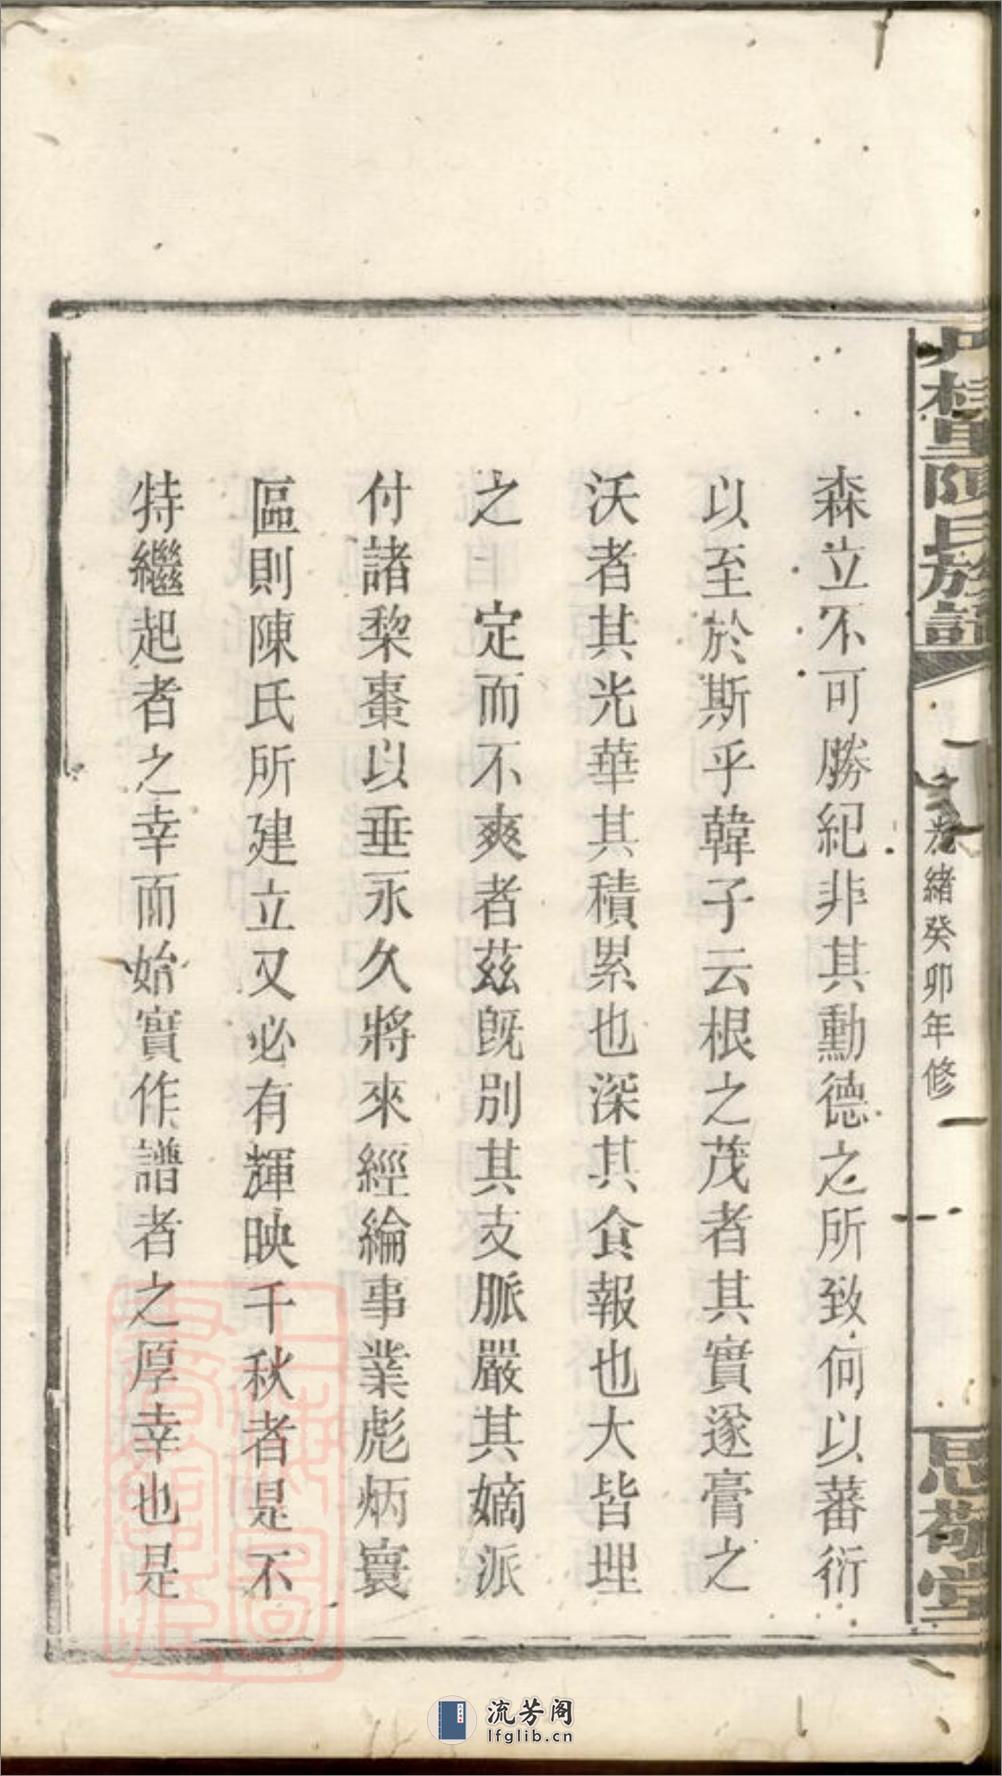 陳氏族譜
光緒癸卯年修
思敬堂
森立不可勝紀非其勳德之所致何以蕃衍
以至於斯乎韓子云根之茂者其實遂膏之
沃者其光華其積累也深其食報也大皆理
之　定而不爽者茲既別其支脈嚴其嫡派
付諸棃棗以垂永久將來經綸事業彪炳寰
區則陳氏所建立又必有輝映千秋者是不
特繼起者之幸而始實作譜者之厚幸也是
上海圖書館藏
流芳阁
lfglib.cn